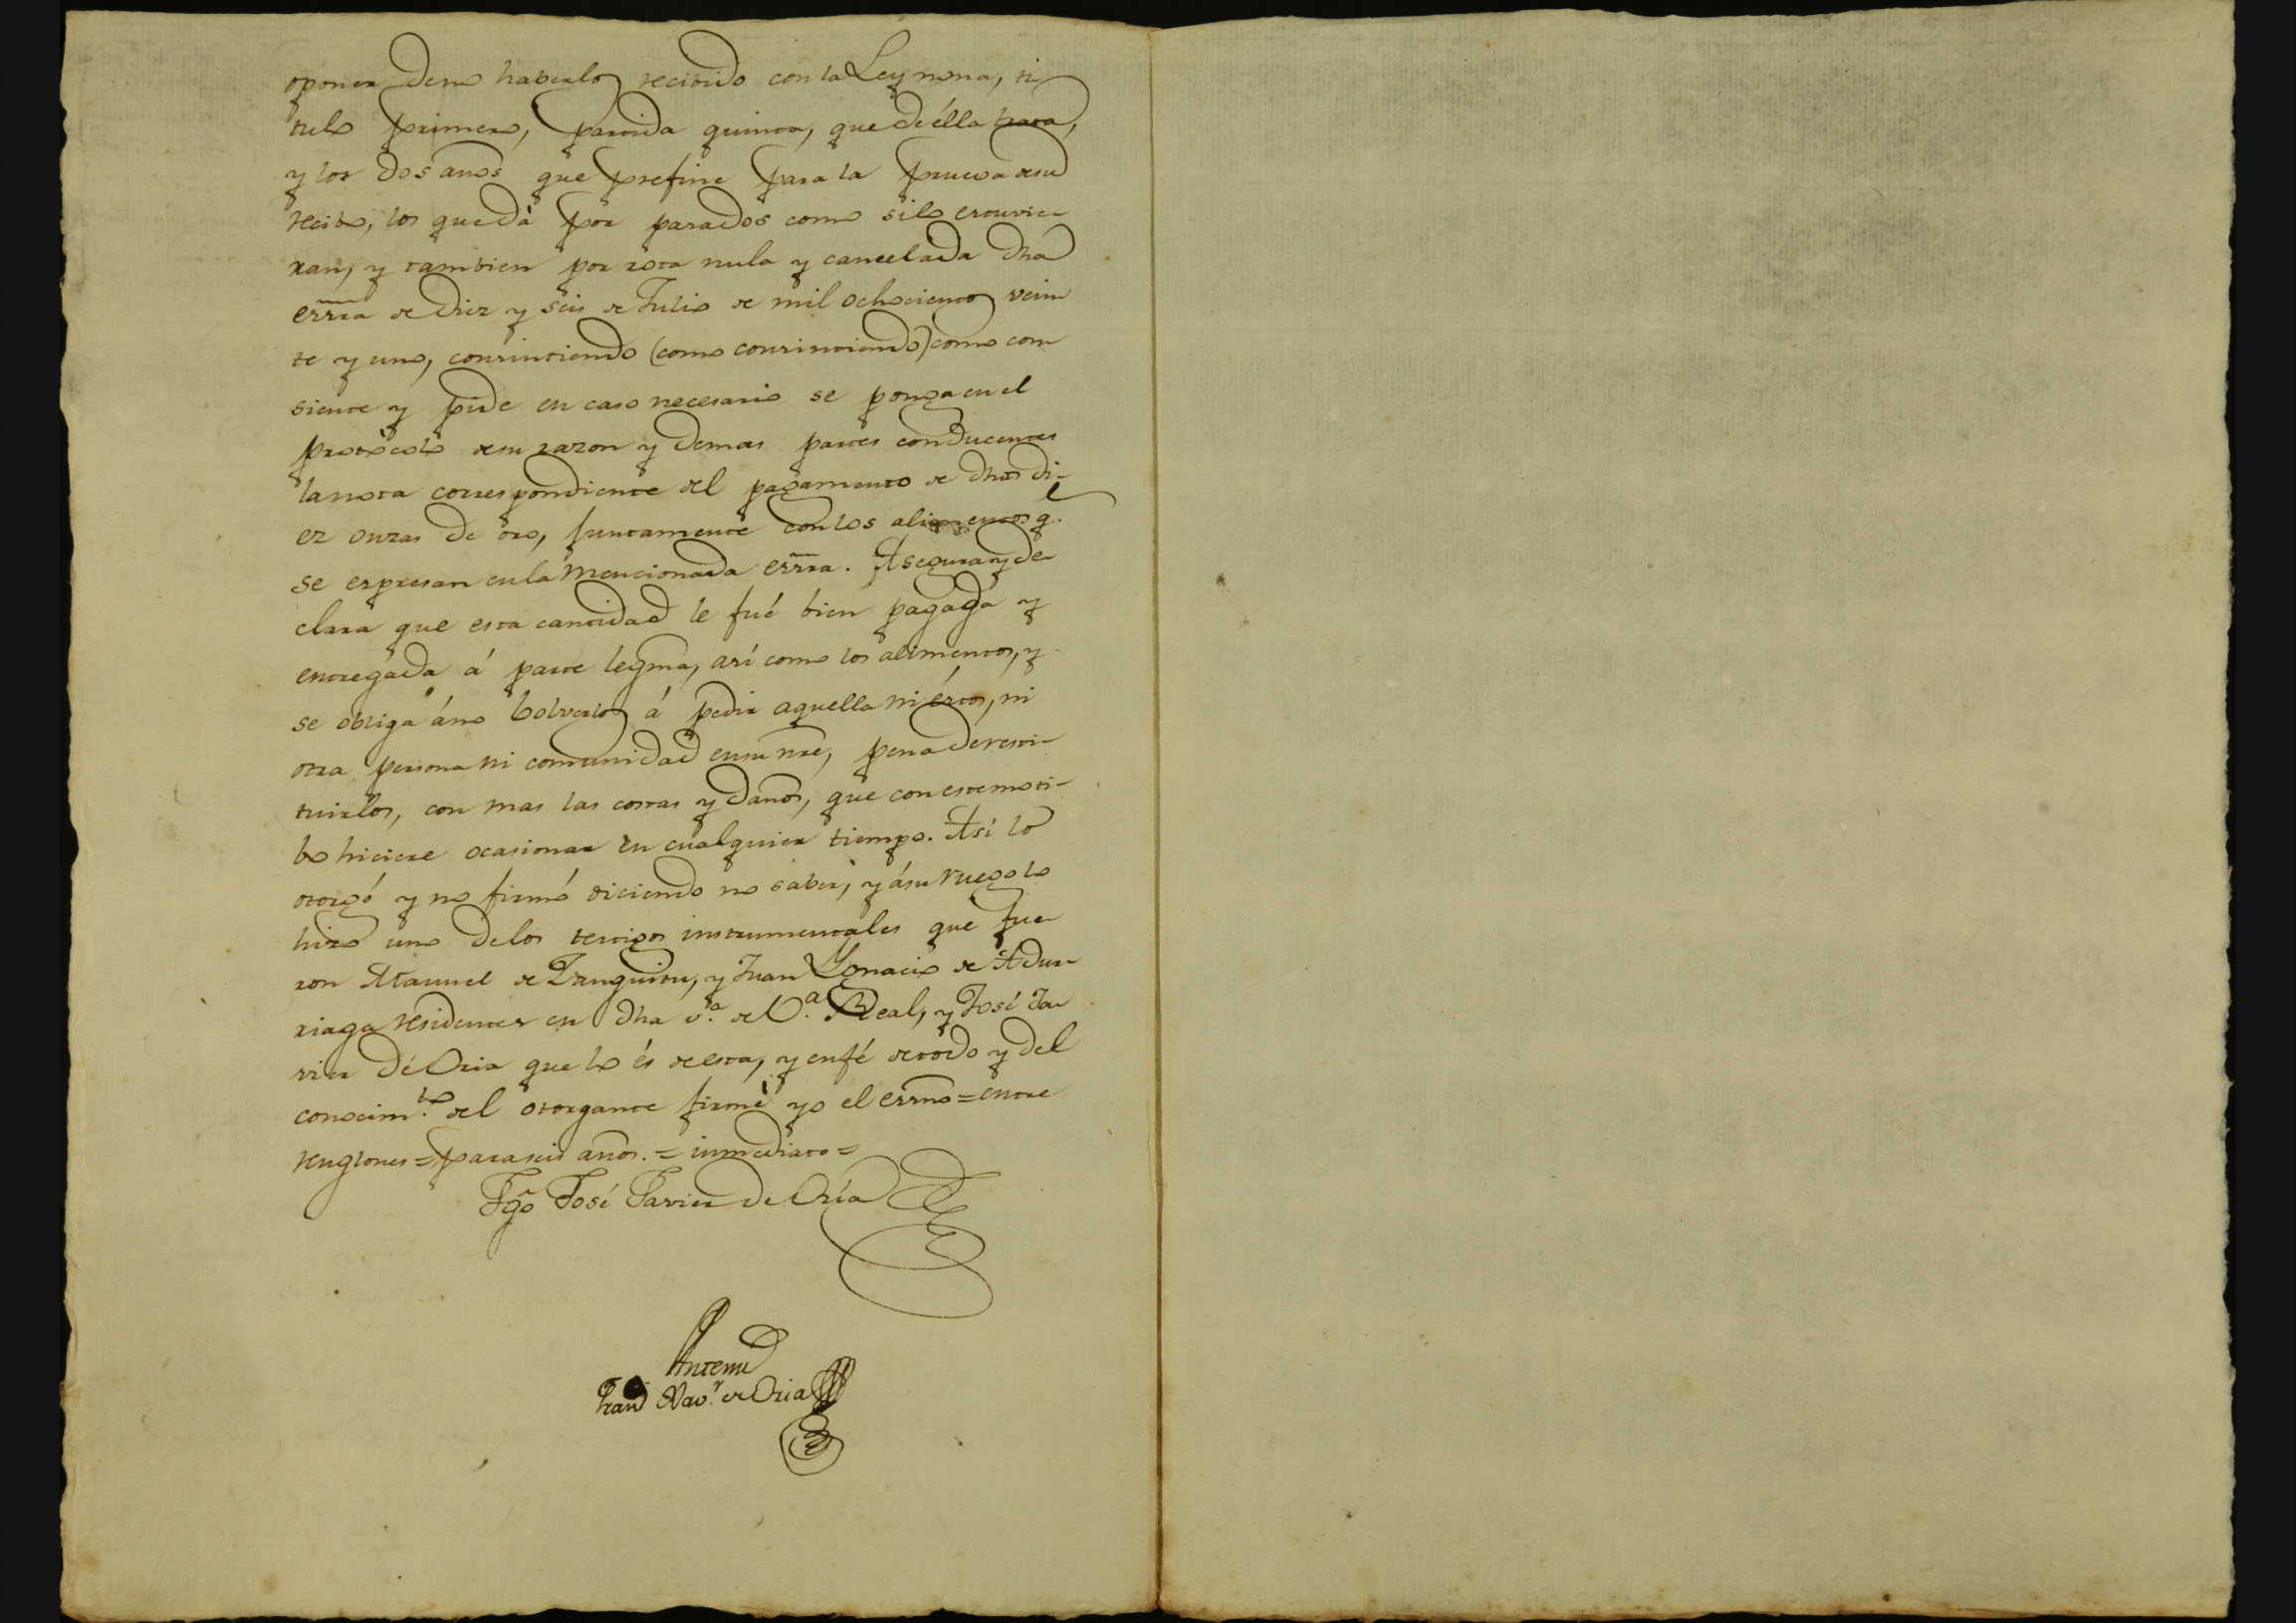 oponer de no haberlos recibido con la Ley nona, ti
tulo primero, partida quinta, que de élla trata,
y los dos años que prefine para la prueva de su
recibo, los que dá por pasados como si lo estuvie
ran, y tambien por rota nula y cancelada dha
esrra de diez y seis de Julio de mil ochocientos vein
te y uno, consintiendo (como consintiendo) como con
siente y pide en caso necesario se ponga en el
protócolo de su razon y demas partes conducentes
la nota correspondiente del pagamento de dhas di-
ez onzas de oro, juntamente con los alimentos q.e
se espresan en la mencionada esrra. Asegura y de
clara que esta cantidad le fué bien pagada y
entregada á parte legma, así como los alimentos, y
se obliga áno bolverlos á pedir aquella ni éstos, ni
otra persona ni comunidad en su nre, pena de resti-
tuirlos, con mas las costas y daños, que con este moti-
bo hiciere ocasionar en cualquier tiempo. Así lo
otorgó y no firmó diciendo no saber, y ásu ruego lo
hizo uno de los testigos instrumentales que fue
ron Manuel de Zanguitu, y Juan Ygnacio de Adur
riaga residentes en dha v.a de V.a Real, y José Ja
vier dé Oria que lo és de esta, y en fé de todo y del
conocim.to del otorgante firmé yo el esrno = entre
renglones = para seis años. = inmediato =
Tgo José Javier de Oria
Antemi
Fran.co Xav.r de Oria